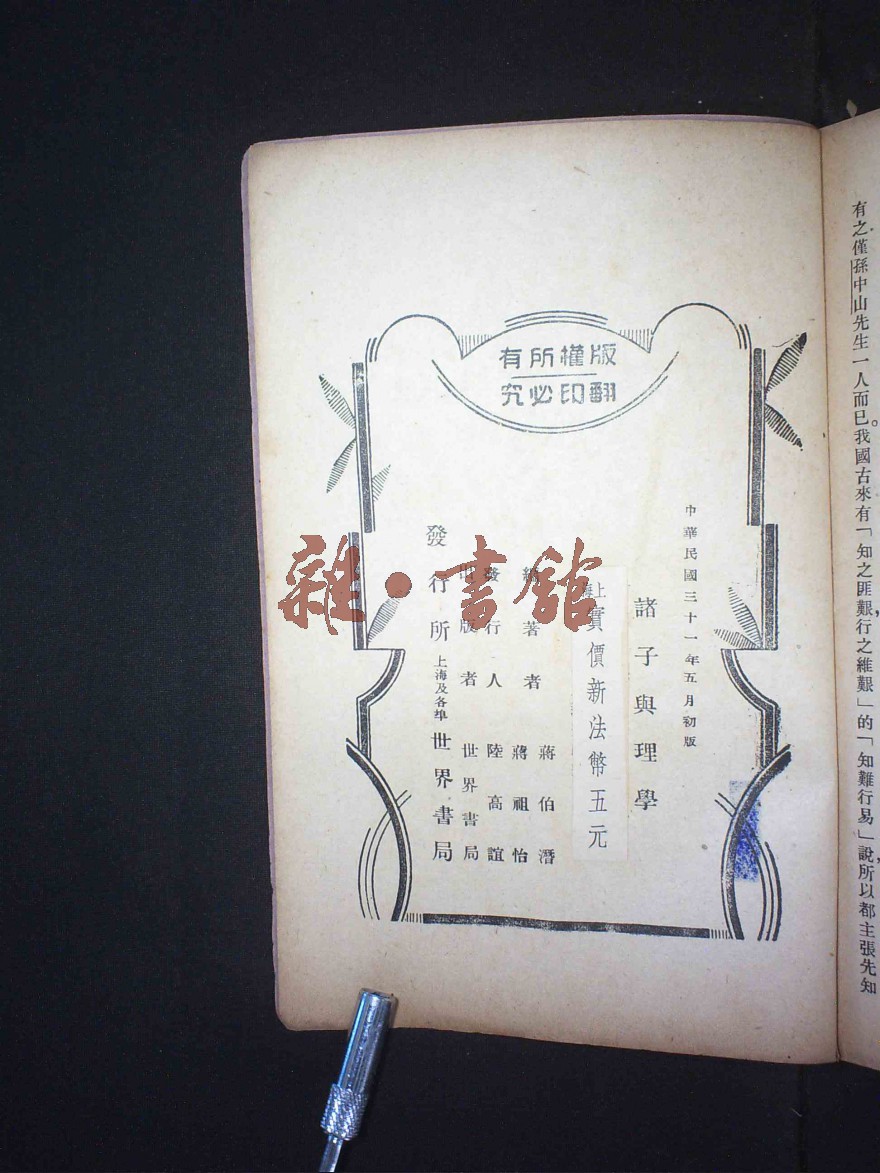 有所權版
究必印翻
中華民國三十一年五月初版
諸子與理學
上海實價新法幣五元
編著者 蔣伯潛 蔣祖怡
發行人 陸高誼
出版者 世界書局
發行所 上海及各埠 世界書局
雜·書館
有之僅孫中山先生一人而已。我國古來有「知之匪艱,行之維艱」的「知難行易」說,所以都主張先知